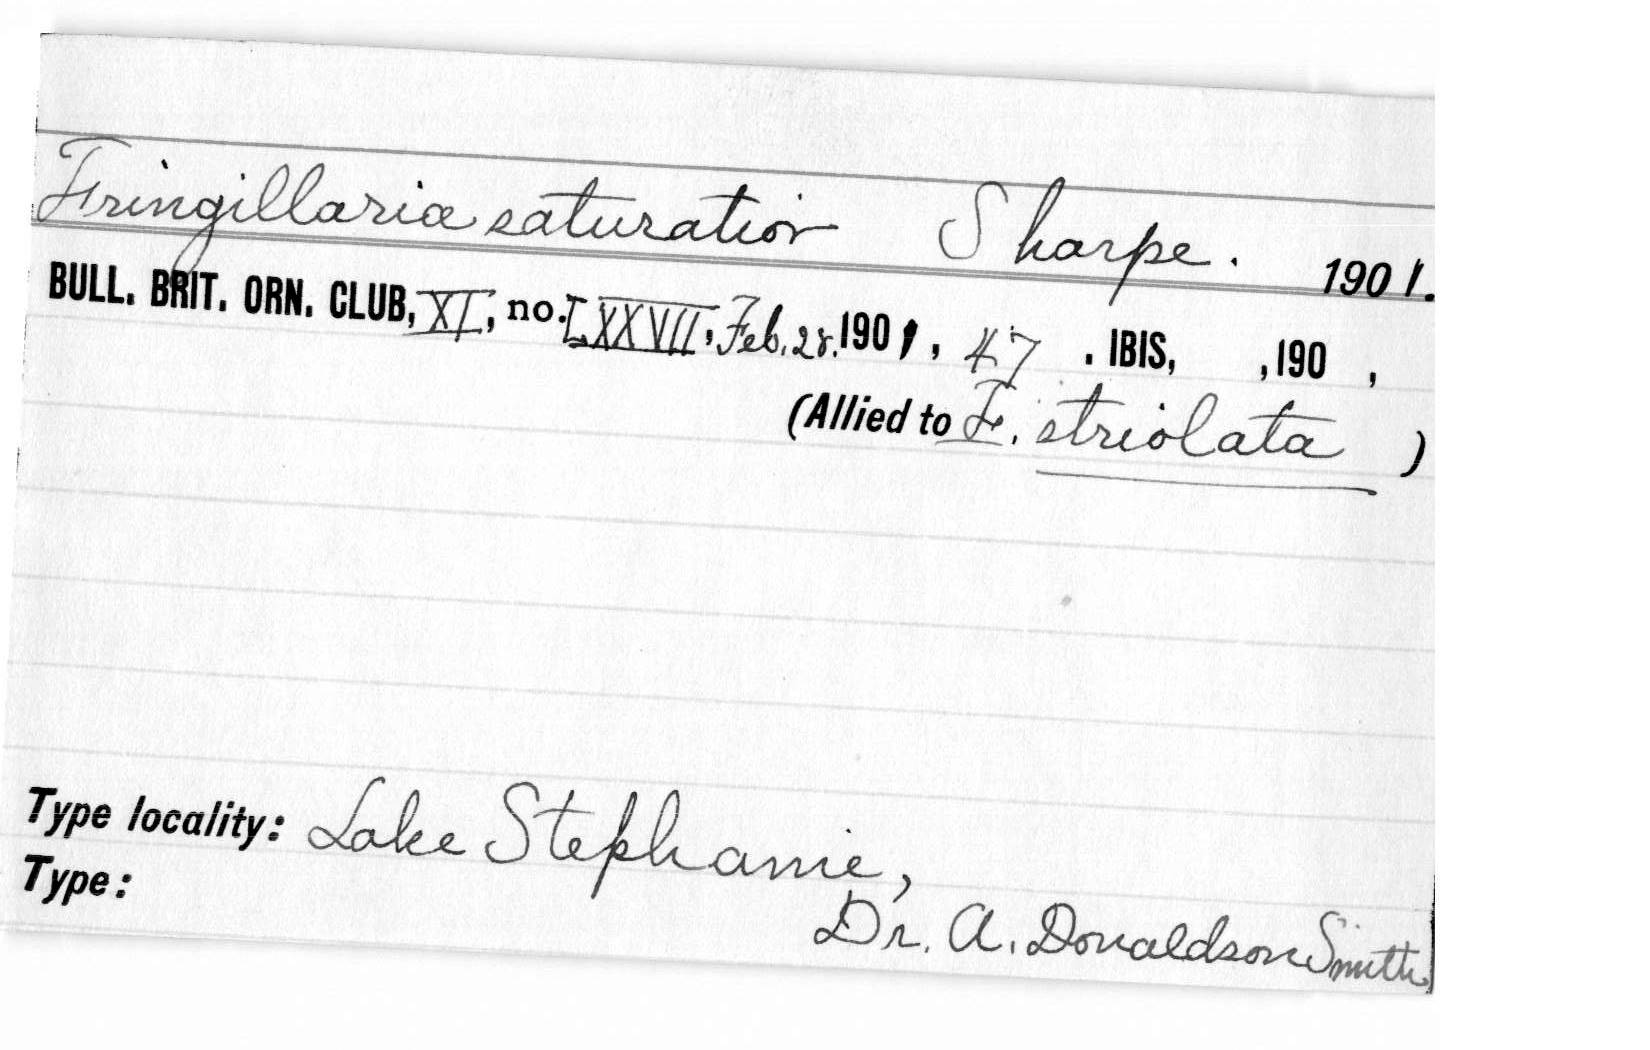 Fringillaria saturatior Sharpe. 1901.
BULL. BRIT. ORN. CLUB, XI, no. LXXVII, Feb. 28. 1901, 47 . IBIS, , 190 ,
(Allied to F. striolata )
Type locality: Lake Stephanie,
Type:
Dr. A. Donaldson Smith